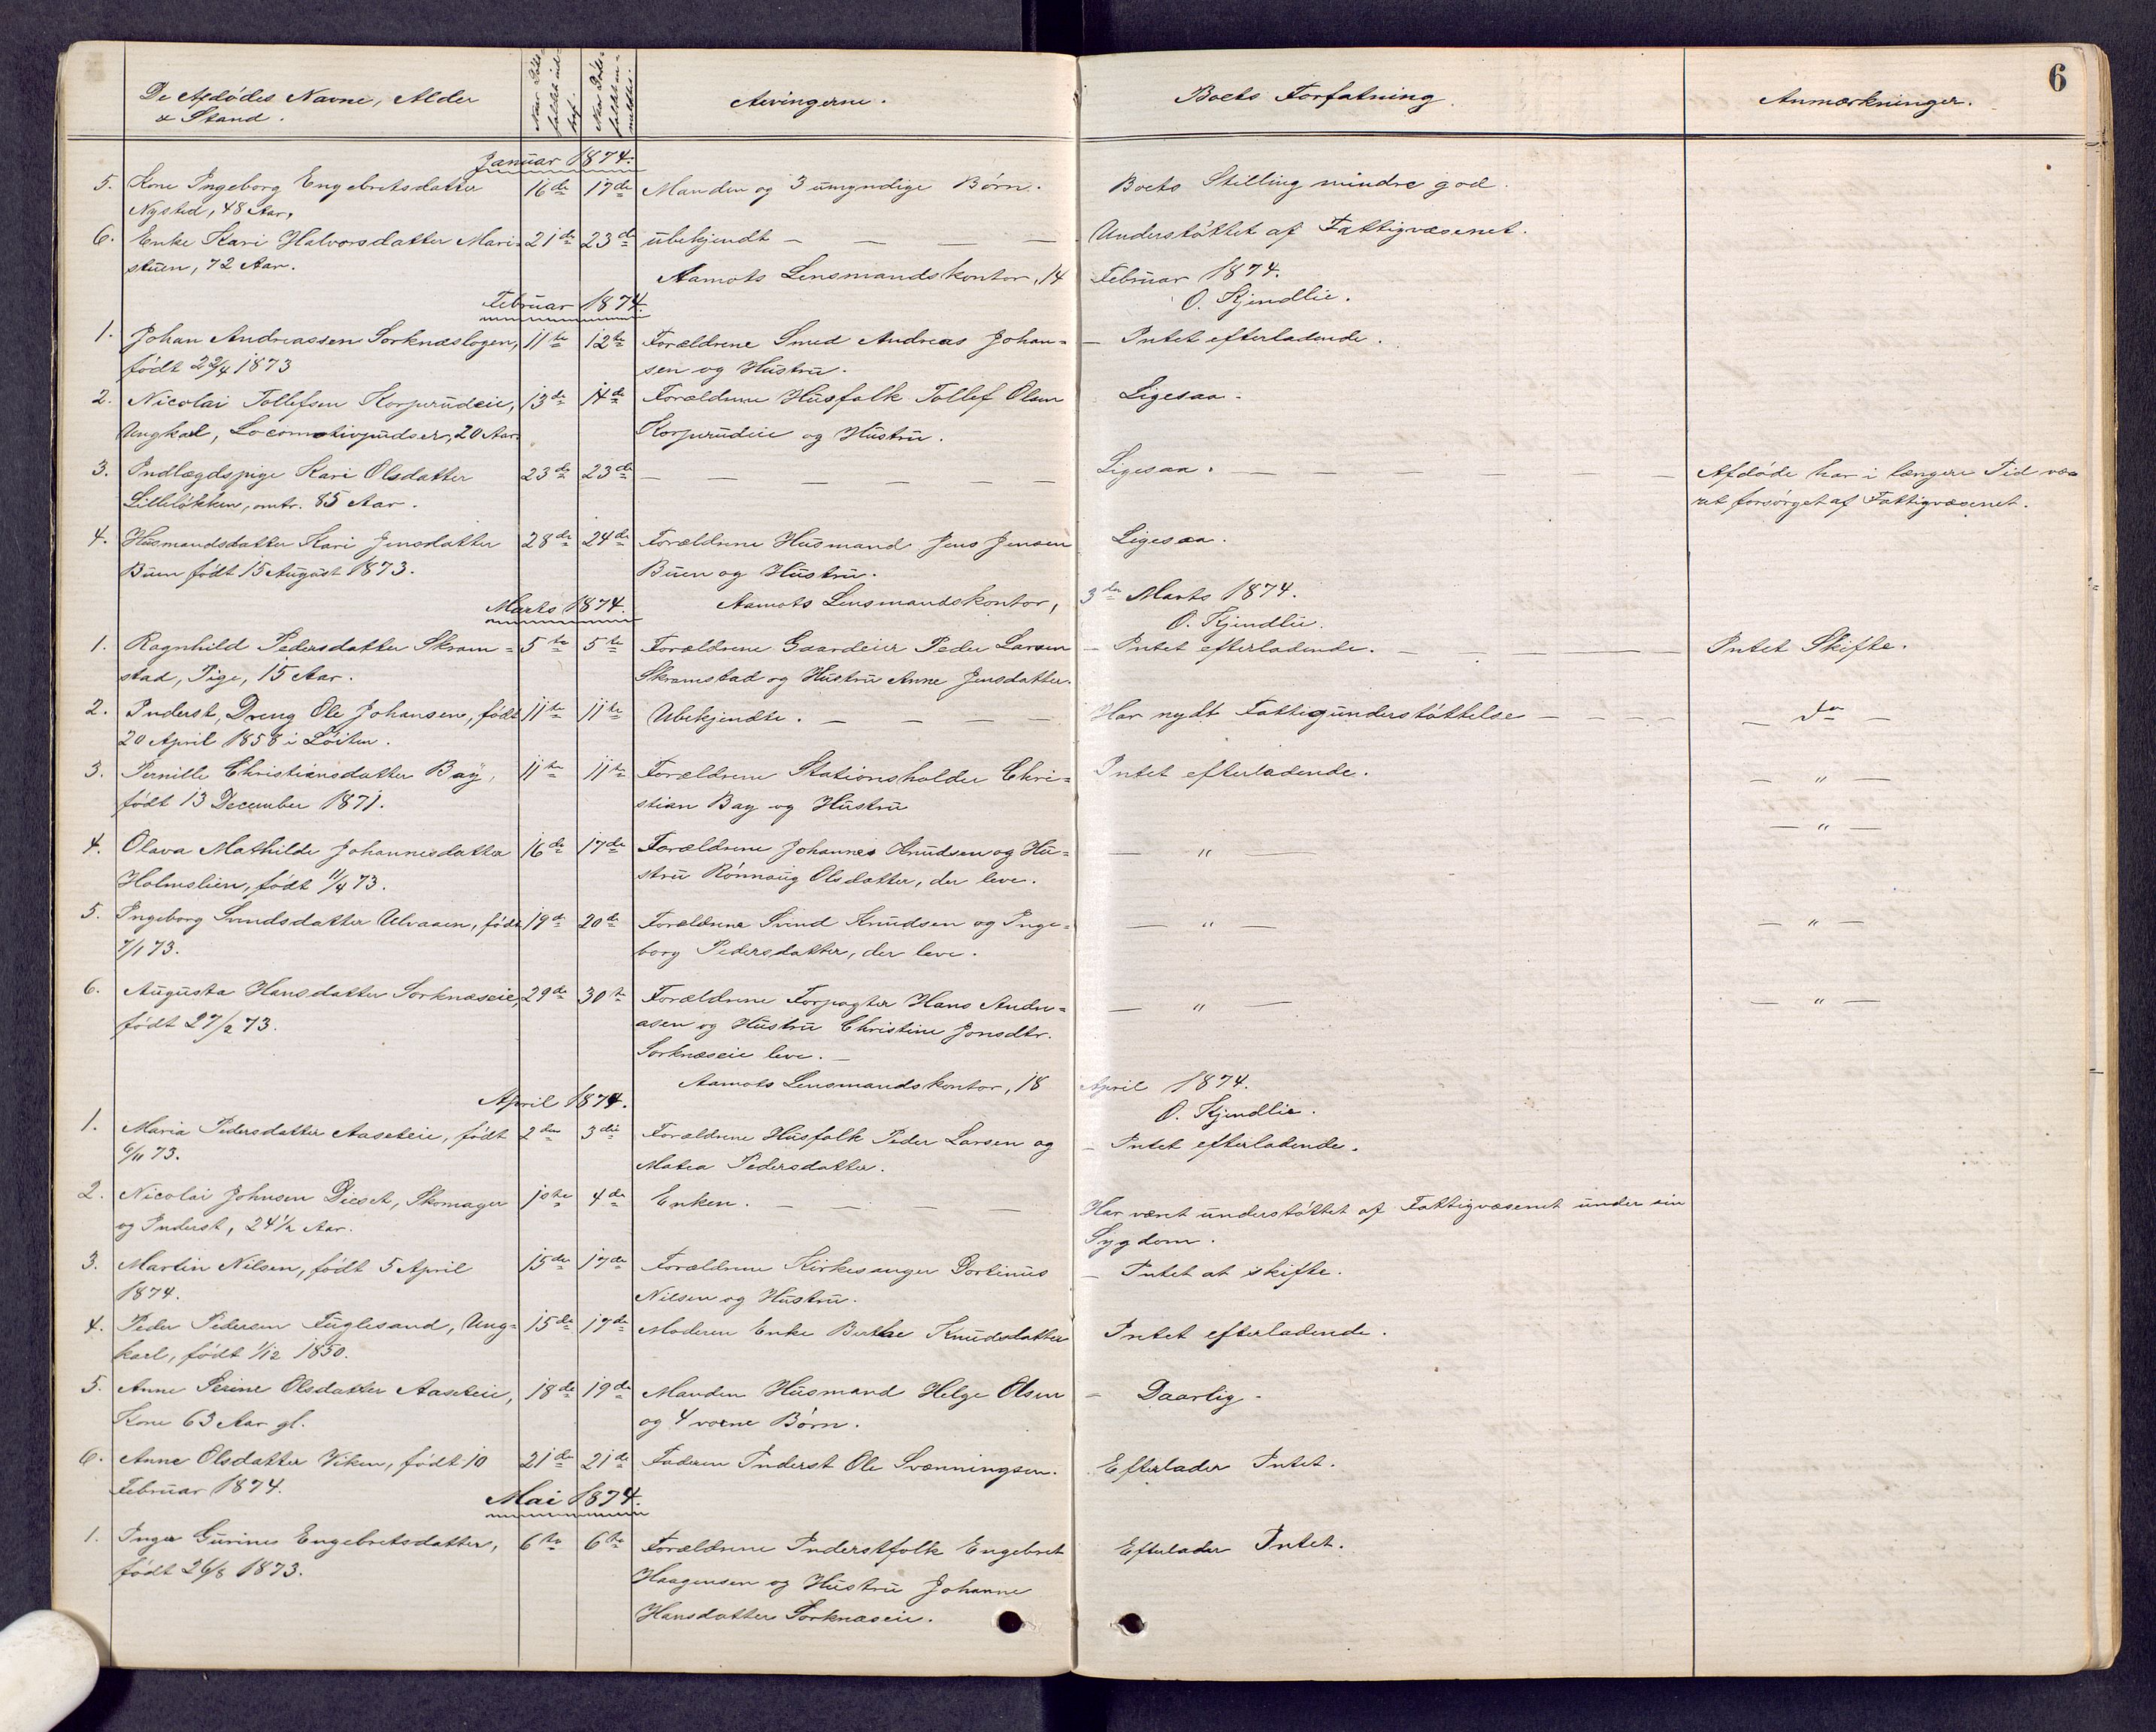 6
De Afdødes Navne, Alder
& Stand.
Naar Døds-
faldet ind-
traf.
Naar Døds-
faldet an-
meldtes.
Arvingerne.
Boets Forfatning
Anmærkninger.
Januar 1874.
5. Kone Ingeborg Engebretsdatter 16de 17de Manden og 3 umyndige Børn. Boets Stilling mindre god.
Nysted, 48 Aar,
6. Enke Kari Halvorsdatter Mari- 21de 23de ubekjendt — — — — Understøttet af Fattigvæsenet.
stuen, 72 Aar.
Aamots Lensmandskontor, 14 Februar 1874.
O. Kjendlie.
Februar 1874.
1. Johan Andreassen Sorknæslogen, 11te 12te Forældrene Smed Andreas Johan= — Intet efterladende.
født 22/4 1873 sen og Hustru.
2. Nicolai Tollefsen Korperudeie, 13de 14de Forældrene Husfolk Tollef Olsen Ligesaa.
Ungkarl, Locomotivpudser, 20 Aar. Korperudeie og Hustru.
3. Indlægdspige Kari Olsdatter 23de 23de — — — — — — Ligesaa. — — — — — — Afdøde har i længere Tid væ-
Lilleløkken, omtr. 85 Aar. ret forsørget af Fattigvæsenet.
4. Husmandsdatter Kari Jensdatter 28de 24de Forældrene Husmand Jens Jensen Ligesaa.
Buen født 15 August 1873. Buen og Hustru.
Aamots Lensmandskontor, 3die Marts 1874.
O. Kjendlie.
Marts 1874.
1. Ragnhild Pedersdatter Skram= 5te 5te Forældrene Gaardeier Peder Larsen — Intet efterladende. — — — — Intet Skifte.
stad, Pige, 15 Aar. Skramstad og Hustru Anne Jensdatter.
2. Inderst, Dreng Ole Johansen, født 11te 11te Ubekjendte. — — — — Har nydt Fattigunderstøttelse — — — — — do —
20 April 1858 i Løiten.
3. Pernille Christiansdatter Bay, 11te 11te Forældrene Stationsholder Chri= Intet efterladende. — " —
født 13 December 1871. stian Bay og Hustru
4. Olava Mathilde Johannesdatter 16de 17de Forældrene Johannes Knudsen og Hu= — " — — " —
Holmslien, født 11/4 73. stru Rønnaug Olsdatter, der leve.
5. Ingeborg Svendsdatter Ulvaaen, født 19de 20de Forældrene Svend Knudsen og Inge= — " — — " —
7/1 73. borg Pedersdatter, der leve.
6. Augusta Hansdatter Sorknæseie, 29de 30te Forældrene Forpagter Hans Andre= — " — — " —
født 27/2 73. asen og Hustru Christine Jonsdtr.
Sorknæseie leve. —
Aamots Lensmandskontor, 18 April 1874.
O. Kjendlie.
April 1874.
1. Maria Pedersdatter Aaseteie, født 2den 3die Forældrene Husfolk Peder Larsen og — Intet efterladende.
6/11 73. Matea Pedersdatter.
2. Nicolai Johnsen Dieset, Skomager 1ste 4de Enken. — — — — Har været understøttet af Fattigvæsenet under sin
og Inderst, 24½ Aar. Sygdom.
3. Martin Nilsen, født 5 April 15de 17de Forældrene Kirkesanger Dortinus — Intet at skifte.
1874. Nilsen og Hustru.
4. Peder Pedersen Fuglesand, Ung= 15de 17de Moderen Enke Berthe Knudsdatter Intet efterladende.
karl, født 1/12 1850.
5. Anne Serine Olsdatter Aaseteie, 18de 19de Manden Husmand Helge Olsen — Daarlig —
Kone 63 Aar gl. og 4 voxne Børn.
6. Anne Olsdatter Viken, født 10 21de 21de Faderen Inderst Ole Svenningsen. Efterlader Intet.
Februar 1874.
Mai 1874.
1. Inger Gurine Engebretsdatter, 6te 6te Forældrene Inderstfolk Engebret Efterlader Intet.
født 26/8 1873. Haagensen og Hustru Johanne
Hansdatter Sorknæseie.